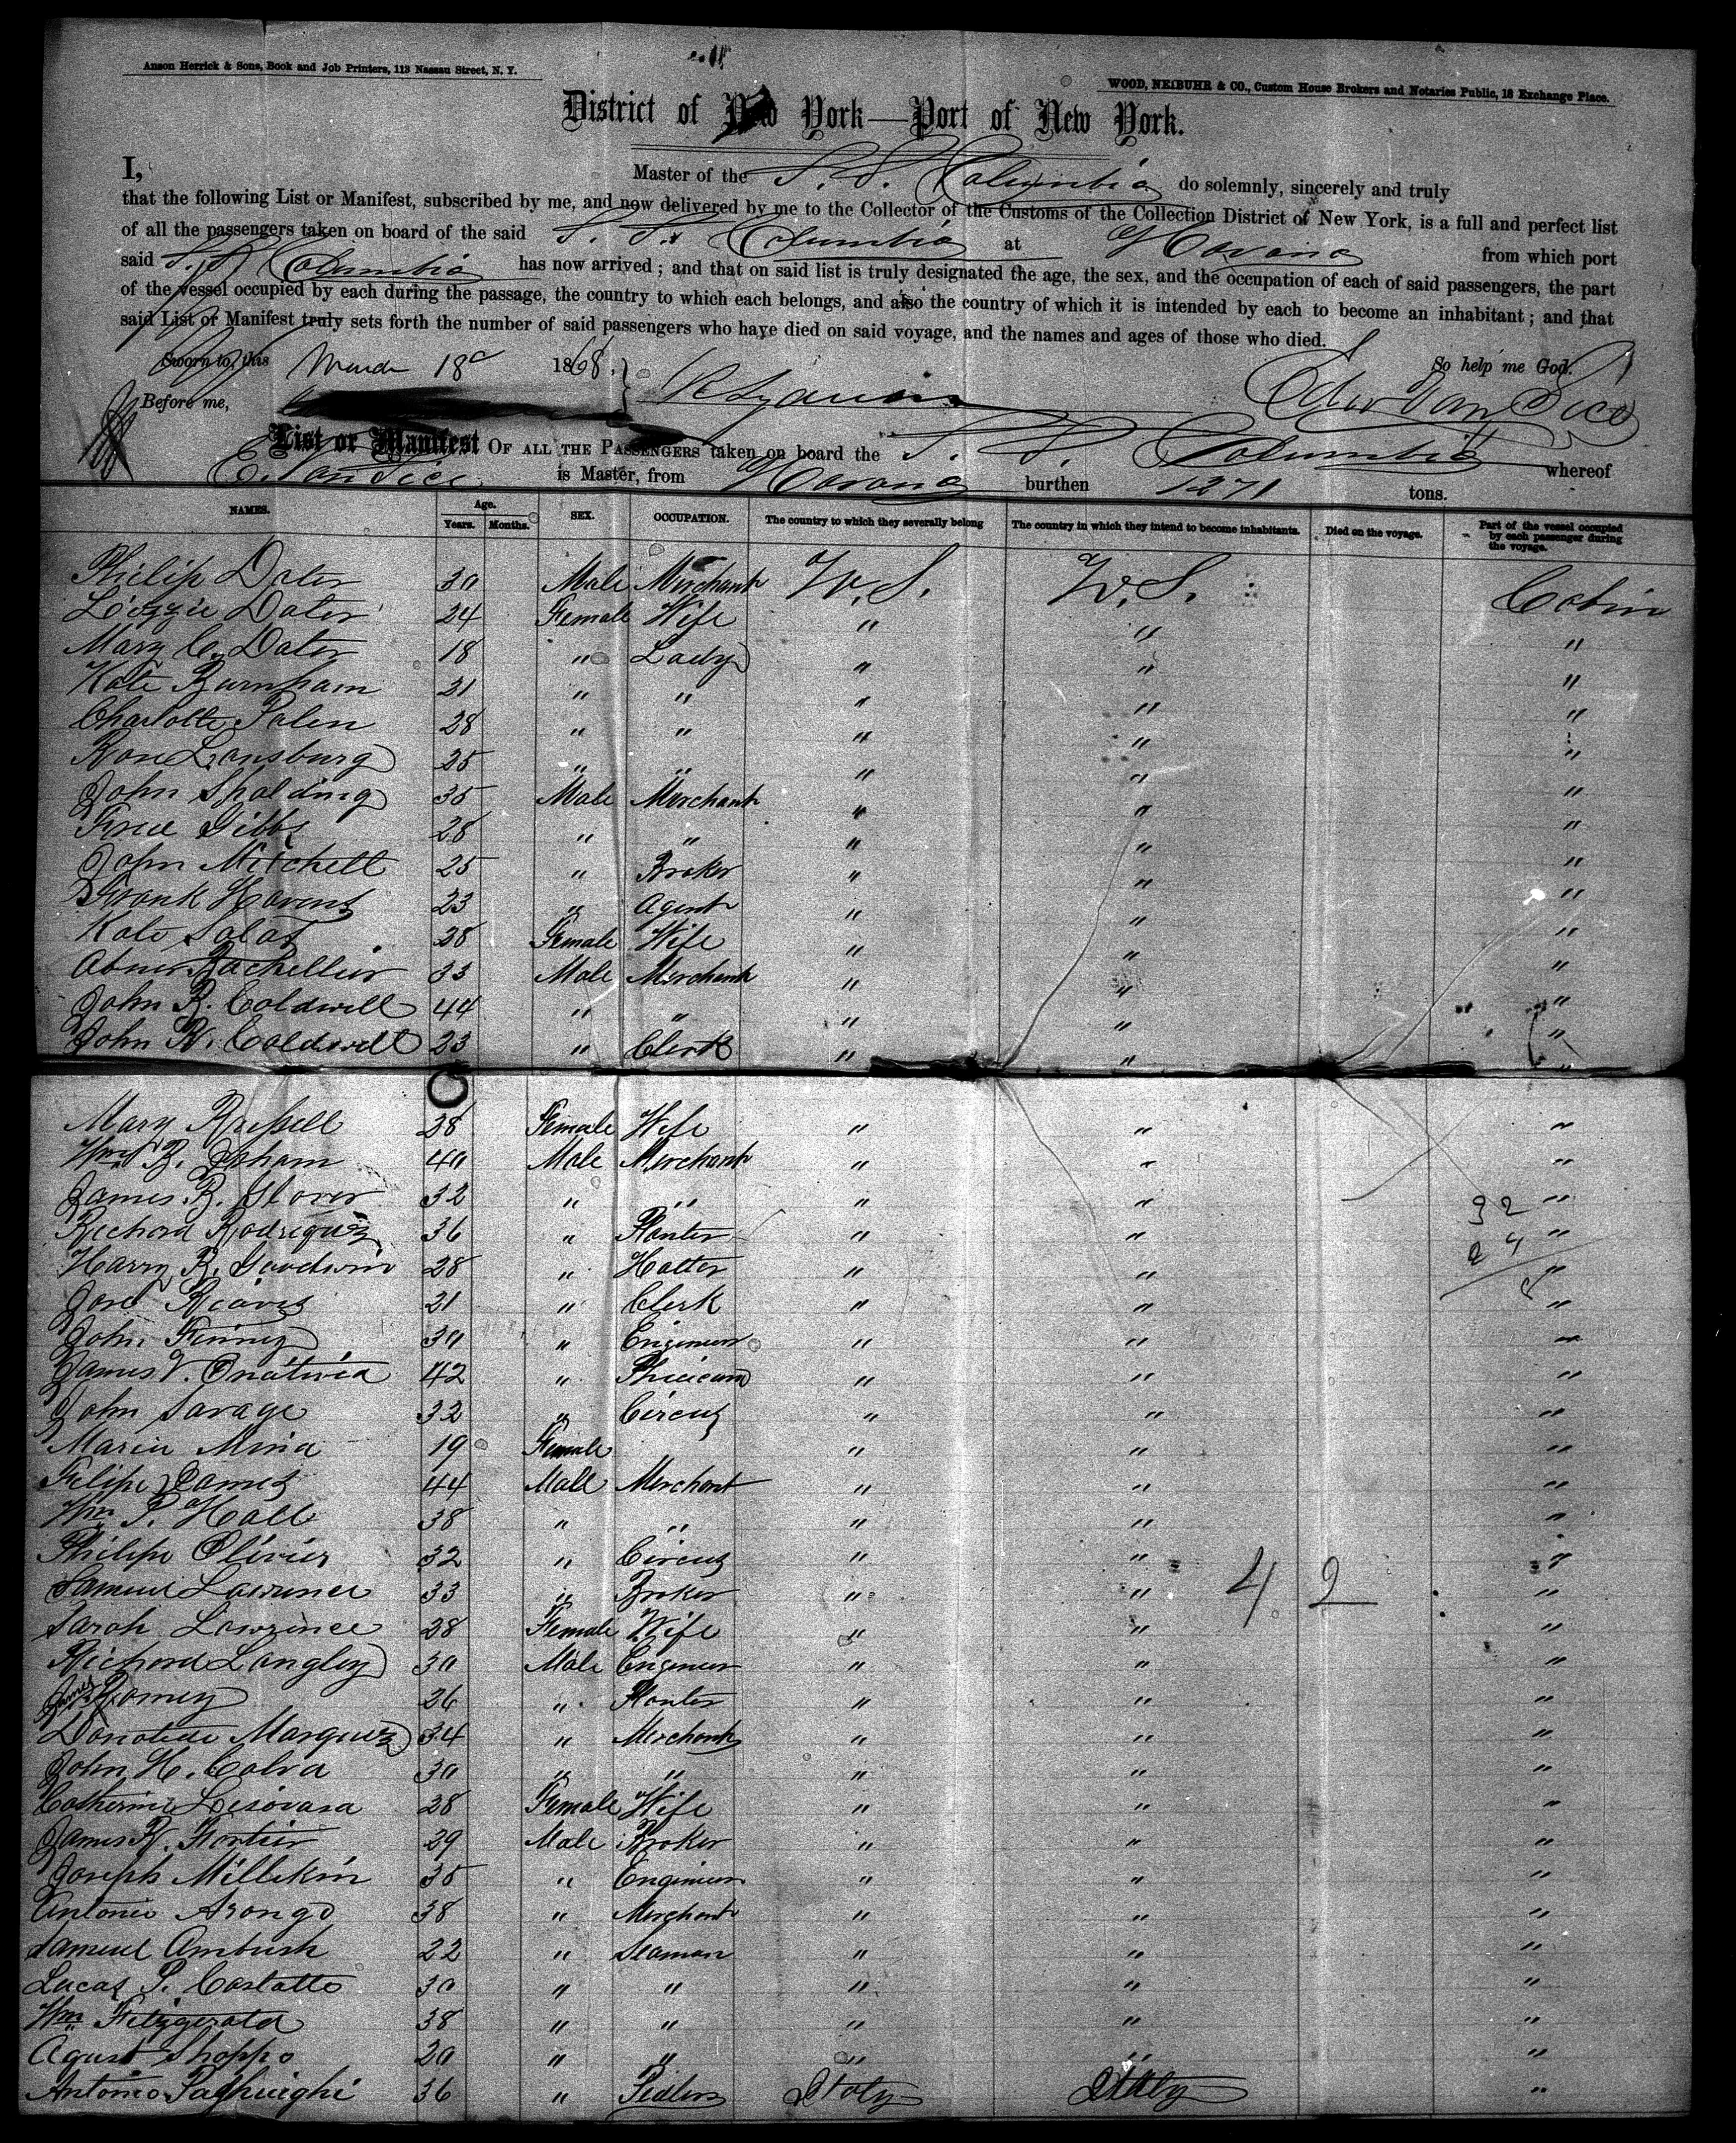 Anson Herrick & Sons, Book and Job Printers, 113 Nassau Street, N. Y.
WOOD, NEIBUHR & CO., Custom House Brokers and Notaries Public, 18 Exchange Place.
District of New York—Port of New York.
I, Master of the S. S. Columbia do solemnly, sincerely and truly
that the following List or Manifest, subscribed by me, and now delivered by me to the Collector of the Customs of the Collection District of New York, is a full and perfect list
of all the passengers taken on board of the said S. S. Columbia at Havana from which port
said S. S. Columbia has now arrived; and that on said list is truly designated the age, the sex, and the occupation of each of said passengers, the part
of the vessel occupied by each during the passage, the country to which each belongs, and also the country of which it is intended by each to become an inhabitant; and that
said List or Manifest truly sets forth the number of said passengers who have died on said voyage, and the names and ages of those who died.
So help me God.
Sworn to, this March 18 1868.
Before me,
Edw Van Sice
List or Manifest OF ALL THE PASSENGERS taken on board the S. S. Columbia whereof
E. Van Sice is Master, from Havana burthen 1271 tons.
NAMES. Age. Years. Months. SEX. OCCUPATION. The country to which they severally belong The country in which they intend to become inhabitants. Died on the voyage. Part of the vessel occupied by each passenger during the voyage.
Philip Dater 30 Male Merchant U. S. U. S. Cabin
Lizzie Dater 24 Female Wife " " "
Mary C. Dater 18 " Lady " " "
Kate Burnham 21 " " " " "
Charlotte Palen 28 " " " " "
Rose Lansburg 25 " " " " "
John Spalding 35 Male Merchant " " "
Fred Gibbs 28 " " " " "
John Mitchell 25 " Broker " " "
Frank Havens 23 " Agent " " "
Kate Salas 28 Female Wife " " "
Abner Bachellier 33 Male Merchant " " "
John R. Caldwell 44 " " " " "
John H. Caldwell 23 " Clerk " " "
Mary Russell 28 Female Wife " " "
Wm B. Isham 40 Male Merchant " " "
James R. Glover 32 " " " " "
Richard Rodriguez 36 " Planter " " "
Harry B. Goodwin 28 " Hatter " " "
Jose Rieaves 21 " Clerk " " "
John Finney 30 " Engineer " " "
James V. Onativia 42 " Phicican " " "
John Savage 32 " Circus " " "
Maria Mina 19 Female " " "
Felipe James 44 Male Merchant " " "
Wm P. Hall 38 " " " " "
Philipe Olivier 32 " Circus " " "
Samuel Lawrence 33 " Broker " " "
42
Sarah Lawrence 28 Female Wife " " "
Richard Langley 30 Male Engineer " " "
James Ramey 26 " Planter " " "
Marquez 34 " Merchant " " "
John H. Calva 30 " " " " "
Catherine Lisovara 28 Female Wife " " "
James H. Fortier 29 Male Broker " " "
Joseph Millikin 35 " Engineer " " "
Antonio Arongo 38 " Merchant " " "
Samuel Ambush 22 " Seaman " " "
Lucas P. Costatto 30 " " " " "
Wm Fitzgerald 38 " " " " "
Agust Shoppo 20 " " " " "
Antonio 36 " Pedler Italy Italy "